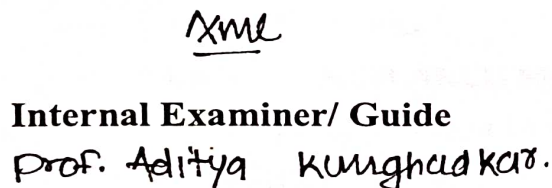 Internal Examiner/ Guide
Prof. Aditya Kunghadkar.